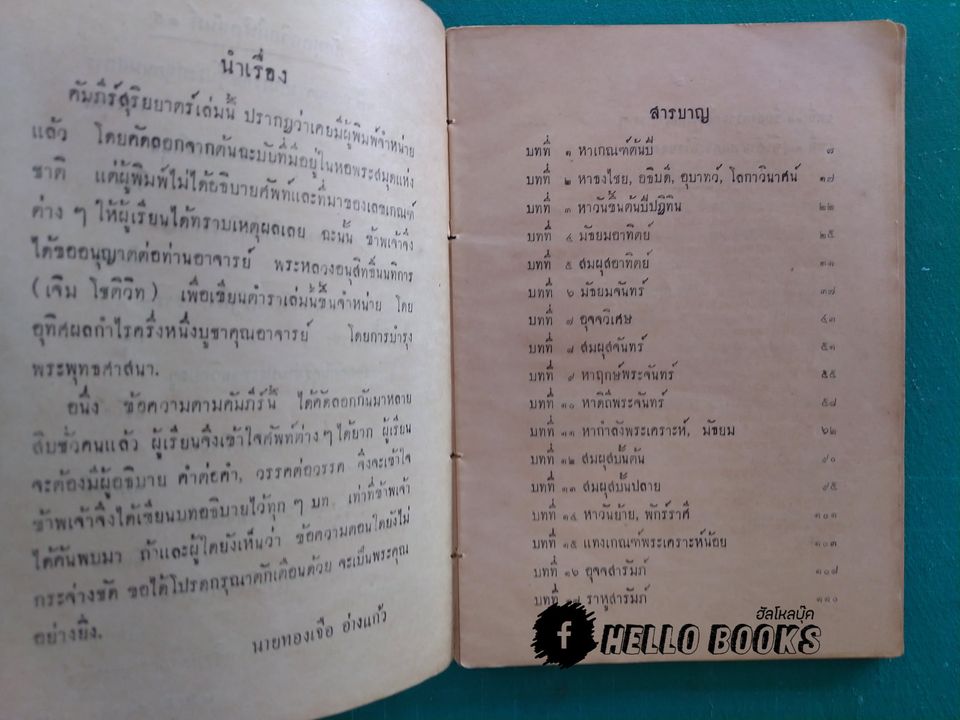 นำเรื่อง
คัมภีร์สุริยยาตร์เล่มนี้ ปรากฏว่าเคยมีผู้พิมพ์จำหน่าย
แล้ว โดยคัดลอกจากต้นฉะบับที่มีอยู่ในหอพระสมุดแห่ง
ชาติ แต่ผู้พิมพ์ไม่ได้อธิบายศัพท์และที่มาของเลขเกณฑ์
ต่าง ๆ ให้ผู้เรียนได้ทราบเหตุผลเลย ฉะนั้น ข้าพเจ้าจึง
ได้ขออนุญาตต่อท่านอาจารย์ พระหลวงอนุสิทธิ์นนทิการ
(เจิม โชติวิท) เพื่อเขียนตำราเล่มนี้ขึ้นจำหน่าย โดย
อุทิศผลกำไรครึ่งหนึ่งบูชาคุณอาจารย์ โดยการบำรุง
พระพุทธศาสนา.
อนึ่ง ข้อความตามคัมภีร์นี้ ได้คัดลอกกันมาหลาย
สิบชั่วคนแล้ว ผู้เรียนจึงเข้าใจศัพท์ต่างๆ ได้ยาก ผู้เรียน
จะต้องมีผู้อธิบาย คำต่อคำ, วรรคต่อวรรค จึงจะเข้าใจ
ข้าพเจ้าจึงได้เขียนบทอธิบายไว้ทุก ๆ บท. เท่าที่ข้าพเจ้า
ได้ค้นพบมา ถ้าและผู้ใดยังเห็นว่า ข้อความตอนใดยังไม่
กระจ่างชัด ขอได้โปรดกรุณาตักเตือนด้วย จะเป็นพระคุณ
อย่างยิ่ง.
นายทองเจือ อ่างแก้ว
สารบาญ
บทที่ ๑ หาเกณฑ์ต้นปี ๘
บทที่ ๒ หาธงไชย, อธิบดี, อุบาทว์, โลกาวินาศน์ ๑๗
บทที่ ๓ หาวันขึ้นต้นปีปฏิทิน ๒๒
บทที่ ๔ มัธยมอาทิตย์ ๒๕
บทที่ ๕ สมผุสอาทิตย์ ๓๑
บทที่ ๖ มัธยมจันทร์ ๓๗
บทที่ ๗ อุจจวิเศษ ๔๓
บทที่ ๘ สมผุสจันทร์ ๕๑
บทที่ ๙ หาฤกษ์พระจันทร์ ๕๕
บทที่ ๑๐ หาดิถีพระจันทร์ ๕๘
บทที่ ๑๑ หากำลังพระเคราะห์, มัธยม ๖๒
บทที่ ๑๒ สมผุสบั้นต้น ๙๐
บทที่ ๑๓ สมผุสบั้นปลาย ๙๕
บทที่ ๑๔ หาวันย้าย, พักร์ราศี ๑๐๑
บทที่ ๑๕ แทงเกณฑ์พระเคราะห์น้อย ๑๐๓
บทที่ ๑๖ อุจจสารัมภ์ ๑๐๗
บทที่ ๑๗ ราหูสารัมภ์ ๑๑๐
ฮัลโหลบุ๊ค
f HELLO BOOKS